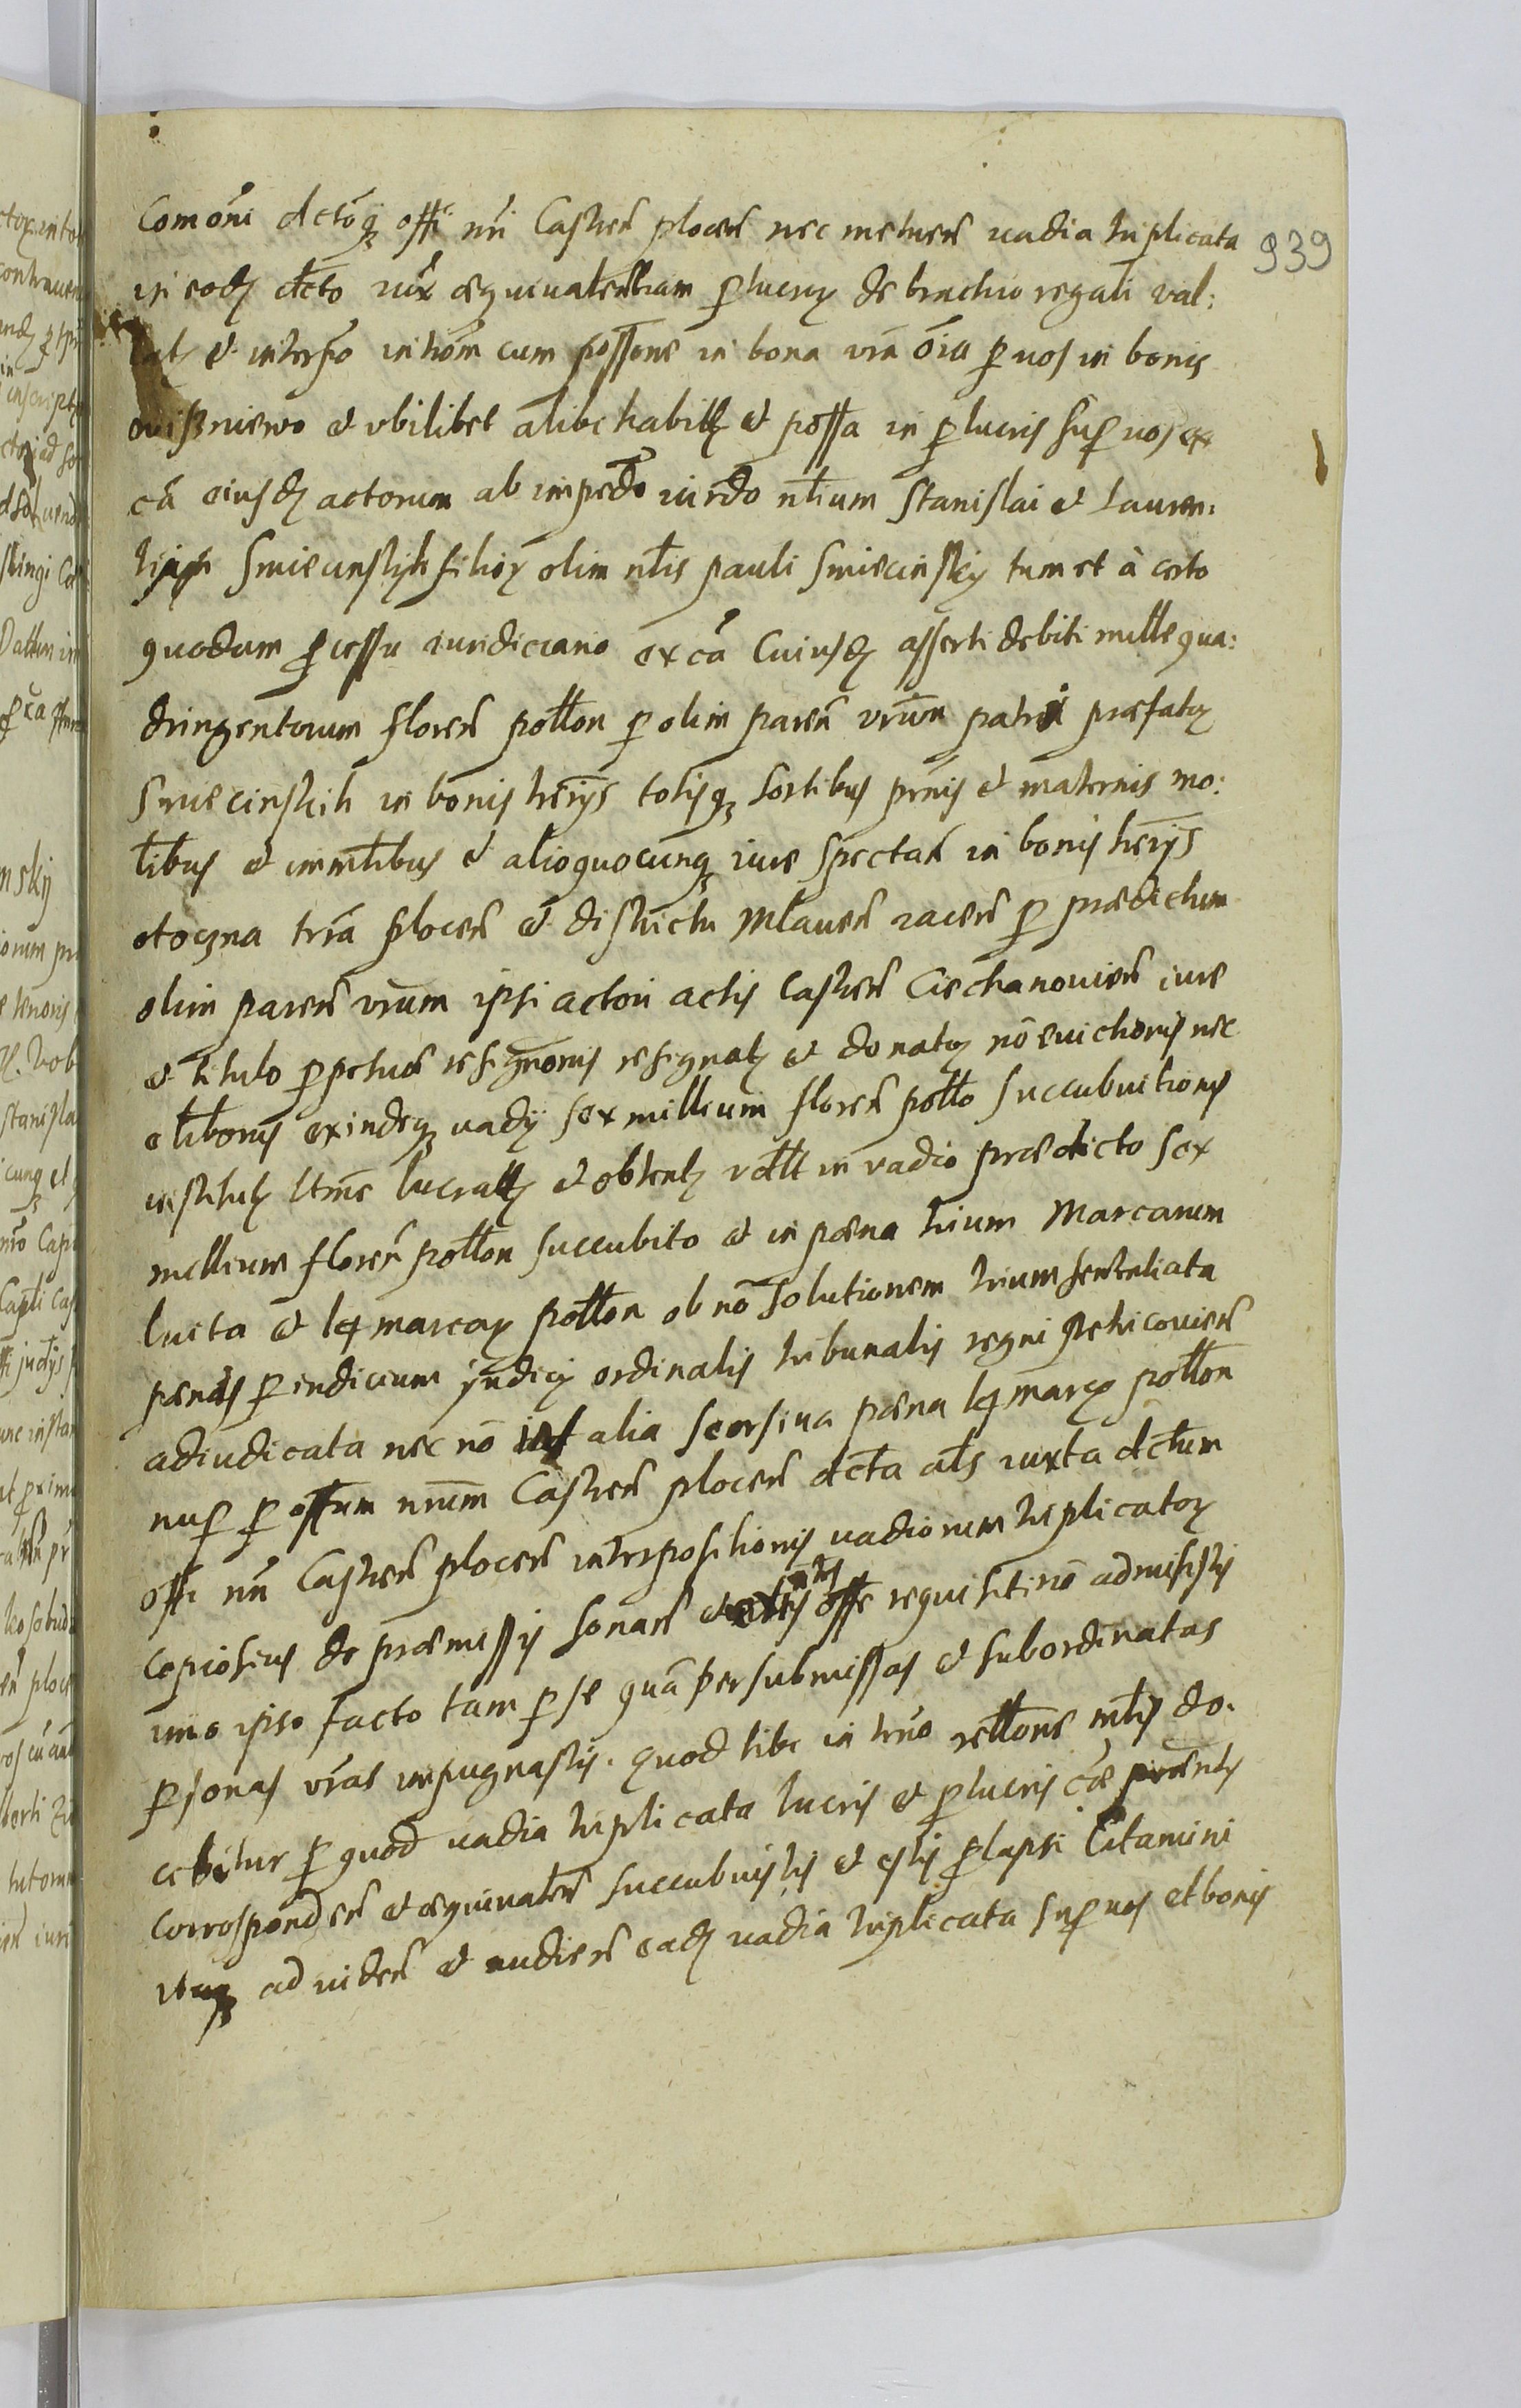 Comoni dctoq offi nri Castren plocen nec metuen vadia triplicata
939
in eodz dcto iux æquivalentiam plucroz de brachio regali val:
et interpo cum possone in bona vra oia p vos in bonis
et ubilibet alibi habitz et possa in p lucris sup vos ex
ca eiusdz actorum ab impedo iurdo nlium Stanislai et Lauren:
Smiecinskyh filioz olim nlis pauli Smiecinsky tum et à certo
quodam pcessu iuridiciario ex ca Cuiusdz asserti debiti mille qua:
dringentorum floren pollon p olim paren vrum patri præfatoz
Smiecinskih in bonis heriys totisqz sortibus prnis et maternis mo:
libus et immlibus et alio quocunqz iure spectan in bonis heriys
otogna trra plocen et districtu Mlaven iacen p prædictum
olim paren vrum ipsi actori actis Castren Ciechanovien iure
et titulo ppetuæ resignonis resignatz et donatoz no evictionis nec
elibonis exindeqz vadij sex millium floren pollo succubuitionis
institutz ltme lucratz et obtentz velt in vadio prædicto sex
millium floren pollon succubito et in pæna trium Marcarum
luita et 14 marcaz pollon ob no solutionem trium
pænas p iudicium judicij ordinalis tribunalis regni petricovien
adiudicata nec no alia seorsiva pæna 14 marcz pollon
nup p offum nrum Castren plocen dcta als iuxta dctum
offi nri Castren plocen interpositionis vadiorum triplicatoz
copiosius de præmissis sonan et offe requisiti no admisistis
imo ipso facto tam p se qua per submissas et subordinatas
psonas vras impugnastis. quod tibi in trno rellone mlis do:
cebitur p quod vadia triplicata lucris et plucris cæ prænti
Corresponden et æquivalen succubuistis et estis plapsi Citamini
itaqz ad viden et audien eadz vadia triplicata sup vos et bonis